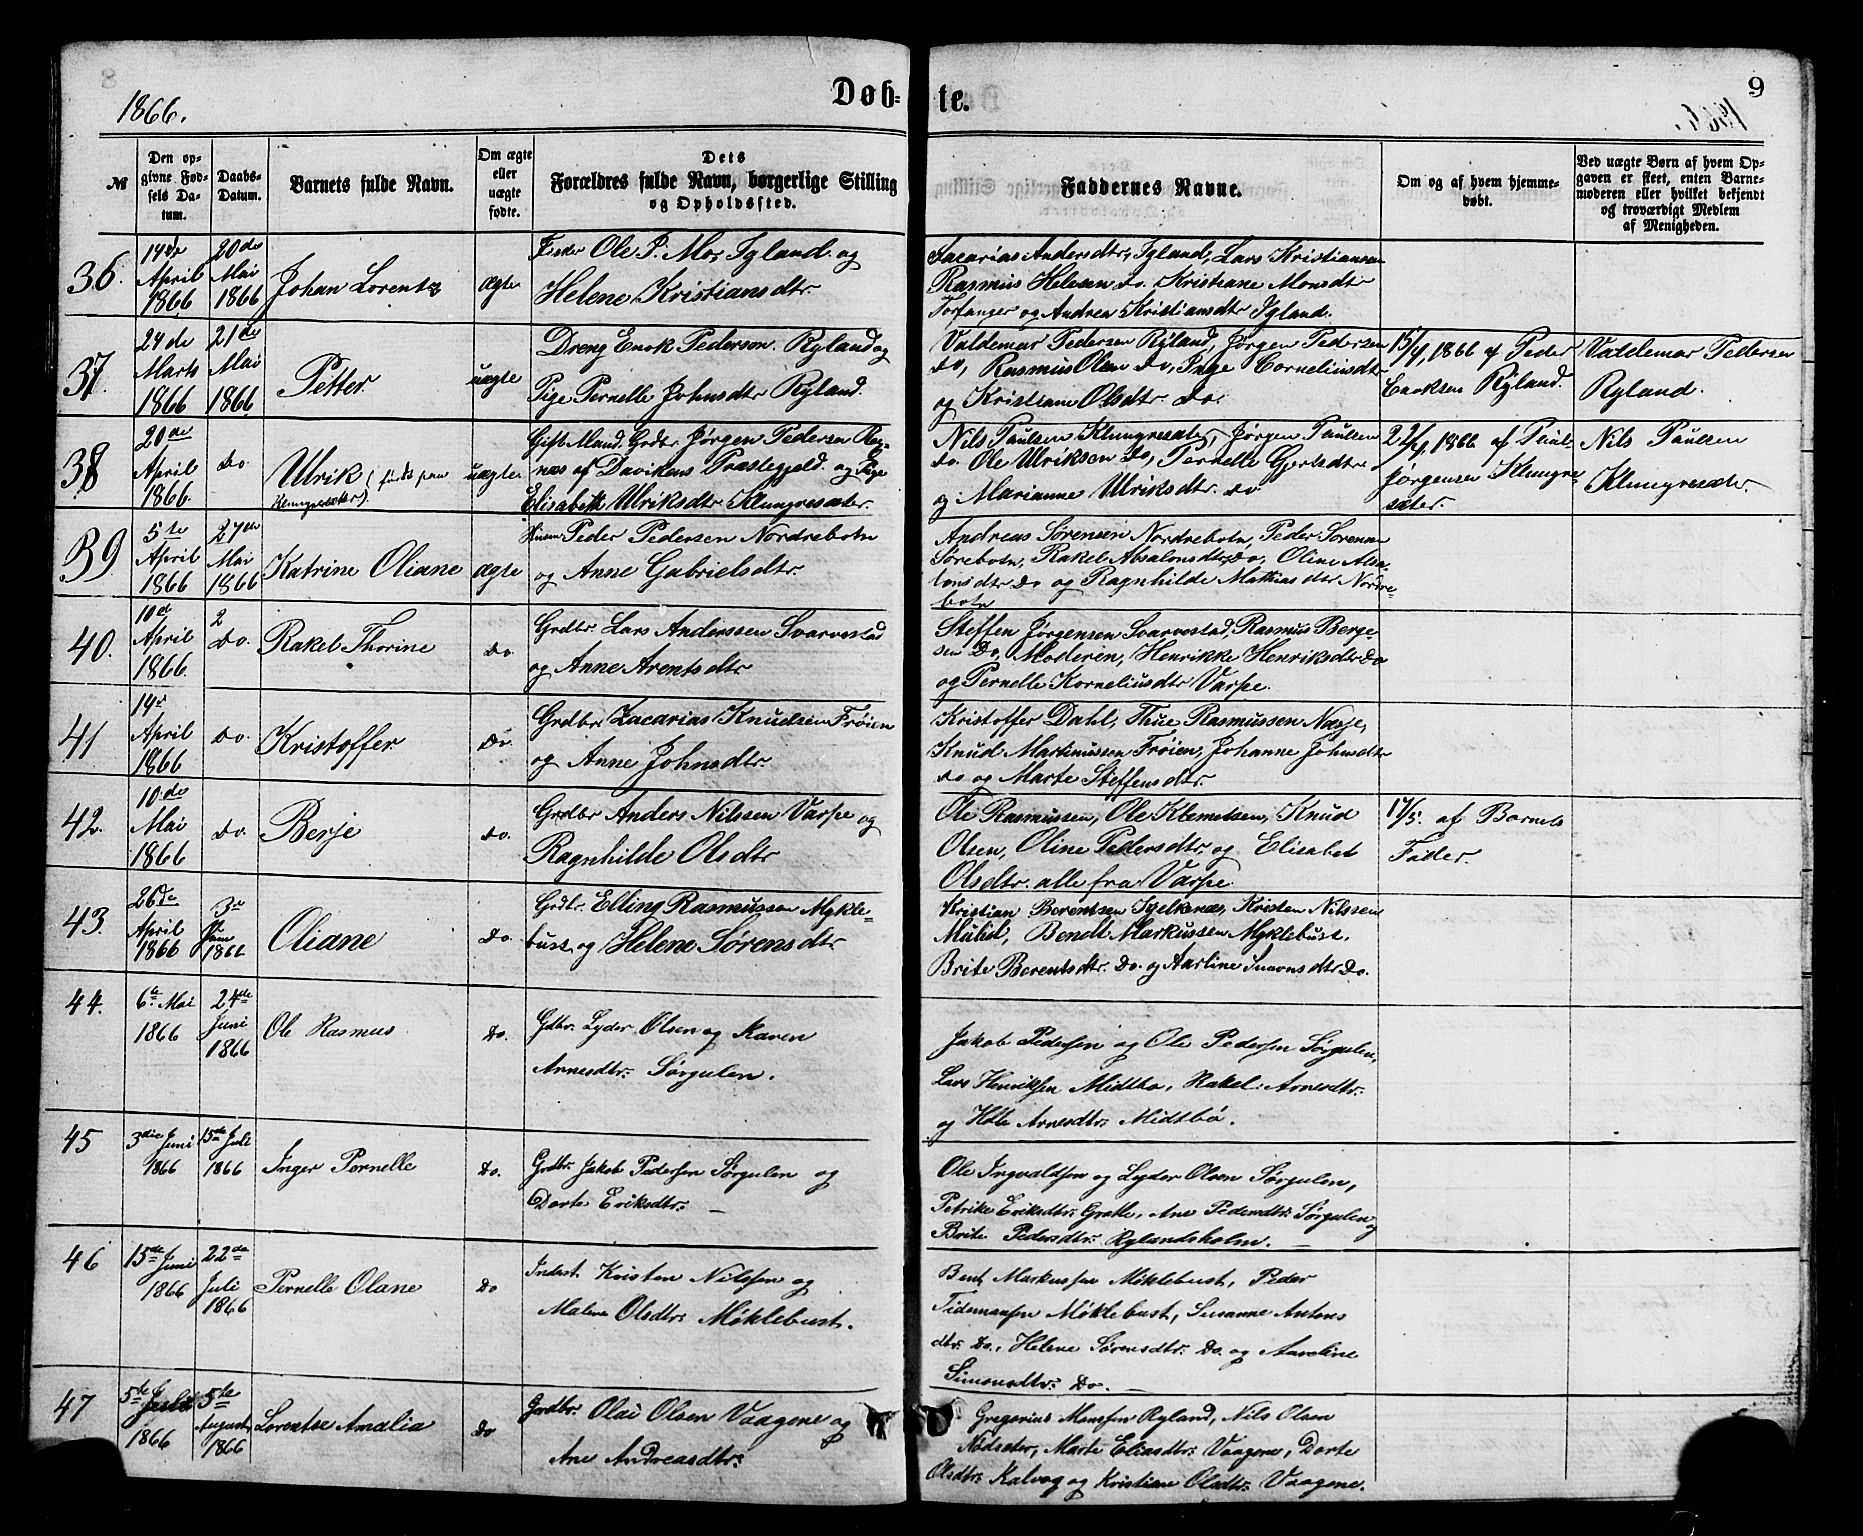 8
1866.
Døb-
te.
9
№
Den op-
givne Fød-
sels Da-
tum.
Daabs-
Datum.
Barnets fulde Navn.
Om ægte
eller
uægte
fødte.
Dets
Forældres fulde Navn, borgerlige Stilling
og Opholdssted.
Faddernes Navne.
Om og af hvem hjemme-
døbt.
Ved uægte Børn af hvem Op-
gaven er skeet, enten Barne-
moderen eller hvilket bekjendt
og troværdigt Medlem
af Menigheden.
36.
14de
April
1866
20de
Mai
1866
Johan Lorentz
Ægte
Ole P. Mor Igland og
Helene Kristiansdtr.
Andersdtr, Igland, Lars Kristiansen
Rasmus Helesen do. Kristiane Monsdtr
Torfanger og Andrea Kristiansdtr Igland.
37.
24de
Marts
1866
21de
Mai
1866
Petter
uægte
Dreng Enok Pedersen Ryland og
Pige Pernelle Johnsdtr Ryland.
Valdemar Pedersen Ryland, Jørgen Pedersen
do, Rasmus Olsen do, Inge Corneliusdtr
og Kristiane Olsdtr do.
15/4 1866 af Peder
Enoksen Ryland.
Valdemar Pedersen
Ryland.
38
20de
April
1866
Do.
Ulrik
uægte
Gift Mand. Grdbr Jørgen Pedersen
af Davikens Præstegjeld og Pige
Elisabeth Ulriksdtr Klungresæter.
Nils Paulsen Klungresæter, Jørgen Paulsen
do. Ole Ulriksen do, Pernelle Gertsdtr
og Marianne Ulriksdtr. do
22/4 1866 af Paul
Jørgensen Klungre-
sæter.
Nils Paulsen
Klungresæter.
39
5te
April
1866
27de
Mai
1866
Katrine Oliane
Ægte
Husm Peder Pedersen Nordrebotn
og Anne Gabrielsdtr.
Andreas Sørensen Nordrebotn, Peder Sørensen
Sørebotn, Rakel Absalonsdtr do, Oline Absa-
lonsdtr do og Ragnhilde Mathiasdtr Nordre-
botn
40.
10de
April
1866.
2
Do.
Rakel Thorine
Do.
Grdbr Lars Anderssen Svarvestad
og Anne Arentsdtr.
Steffen Jørgensen Svarvestad, Rasmus Berge
sen Do, Moderen, Henrikke Henriksdtr Do
og Pernelle Korneliusdtr Varpe.
41
14de
April
1866
Do.
Kristoffer
Do.
Grdbr. Zacarias Knudsen Frøien
og Anne Johnsdtr.
Kristoffer Dahl, Thue Rasmussen
Knud Martinussen Frøien, Johanne Johnsdtr
do og Marte Steffensdtr.
42.
10de
Mai
1866
Do.
Berje
Do.
Grdbr Anders Nilssen Varpe og
Ragnhilde Olsdtr
Ole Rasmussen, Ole Klemetsen, Knud
Olsen, Oline Pedersdtr og Elisabet
Olsdtr. alle fra Varpe.
17/5. af Barnets
Fader.
43.
26de
April
1866
3de
Juni
1866
Oliane
Do.
Grdbr. Elling Rasmussen Mykle-
bust og Helene Sørensdtr
Kristian Berentsen Kristen Nilssen
Bendt Markussen Myklebust.
Brite Berentsdtr. Do. og Aarline Simonsdtr Do.
44.
6te Mai
1866
24de
Juni
1866
Ole Rasmus
Do.
Gdbr. Lyder Olsen og Karen
Arnesdtr. Sørgulen.
Jakob Pedersen og Ole Pedersen Sørgulen,
Lars Henriksen Midtbø, Rakel Arnesdtr.
og Arnesdtr: Midtbø.
45
3die Juni
1866
15de Juli
1866
Inger Pernelle
Do.
Grdbr. Jakob Pedersen Sørgulen og
Dorte Eriksdtr.
Ole Ingvaldsen og Lyder Olsen Sørgulen,
Petrike Eriksdtr. Grotle, Ane Pedersdtr. Sørgulen
og
Brite Pedersdtr. Rylandsholm.
46
15de Juni
1866
22de
Juli
1866
Pernelle Olane
Do
Inderst Kristen Nilsen og
Malene Olsdtr. Møklebust.
Bent Markussen Møklebust, Peder
Tidemansen Møklebust, Susanne Antons
dtr. Do., Helene Sørensdtr. Do. og Aareline
Simonsdtr. Do.
47
5te
Juli
1866
5te
August
1866
Lorentse Amalia
Do
Grdbr. Olai Olsen Vaagene og
Ane Andreasdtr.
Gregorius Monsen Ryland, Nils Olsen
Nødsæter, Marte Eliasdtr. Vaagene, Dorte
Olsdtr. Kalvog og Kristiane Olsdtr. Vaagene.